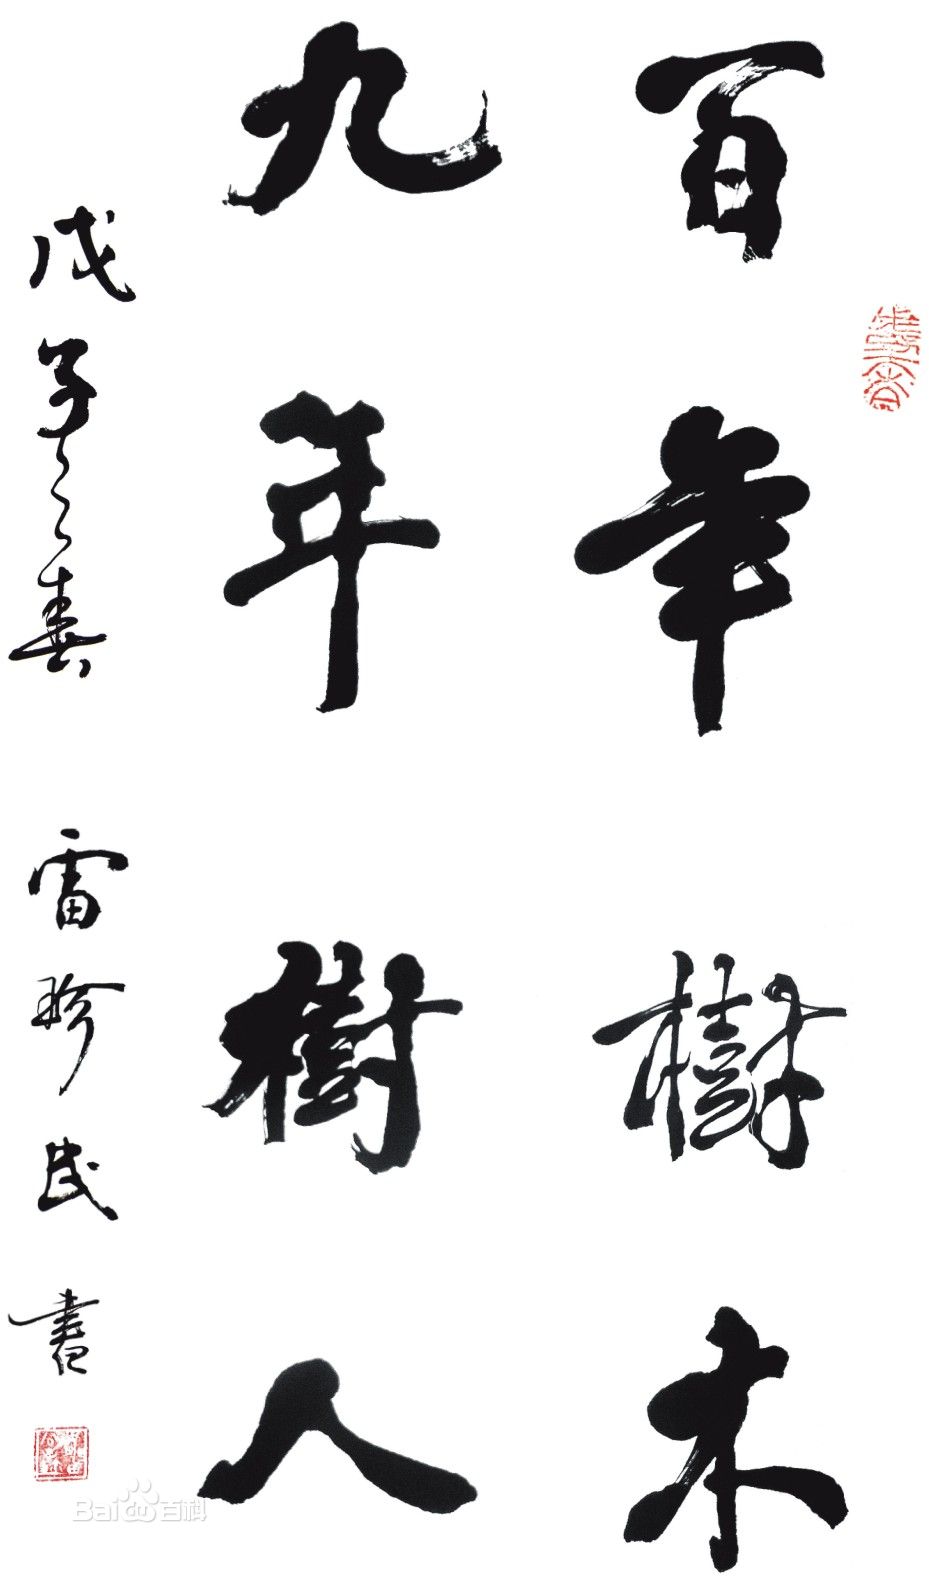 百年樹木
九年樹人
戊子之春 雷珍民書
Bai百科